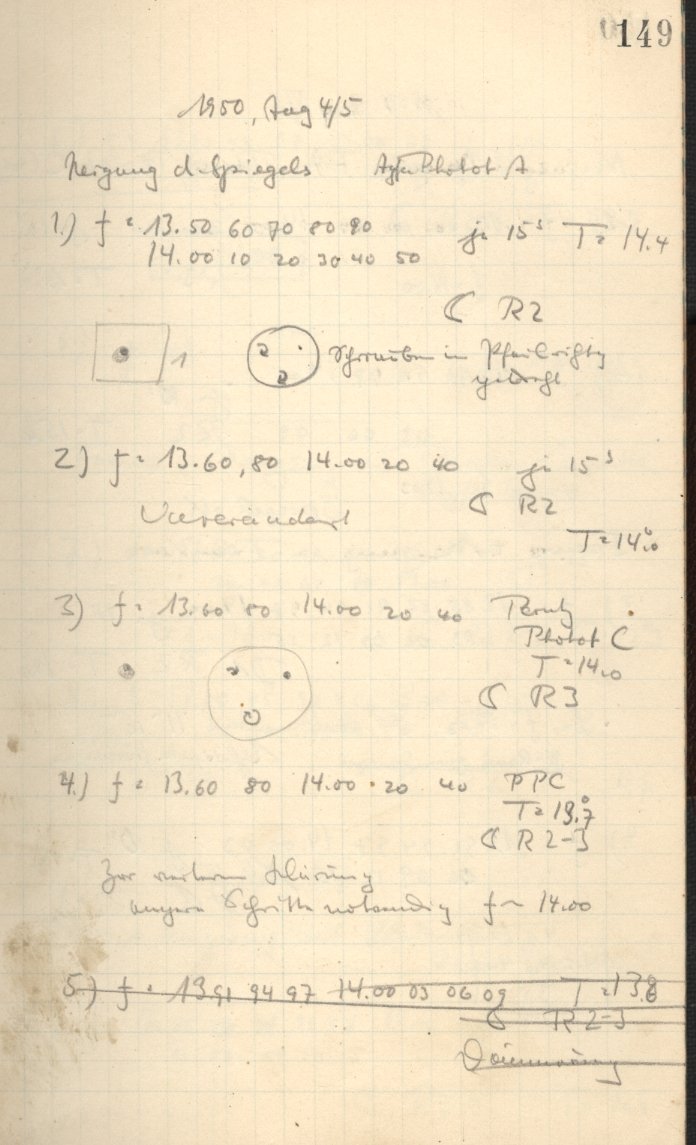 149
1950, Aug 4/5
Neigung d. Spiegels Agfa Phot A
1.) f = 13.50 60 70 80 90 je 15ˢ T = 14.4
14.00 10 20 30 40 50
R2
1 Schrauben in Pfeilrichtg
gedreht
2) f = 13.60, 80 14.00 20 40 je 15ˢ
Unverändert R2
T = 14.0°
3) f = 13.60 80 14.00 20 40 Perutz
Phot C
T = 14.0
R3
4.) f = 13.60 80 14.00 20 40 PPC
T = 13.7°
R 2-3
Zur weiteren Klärung
engere Schritte notwendig f ~ 14.00
5.) f = 13.91 94 97 14.00 03 06 09 T = 13.8
R 2-3
Dämmerung